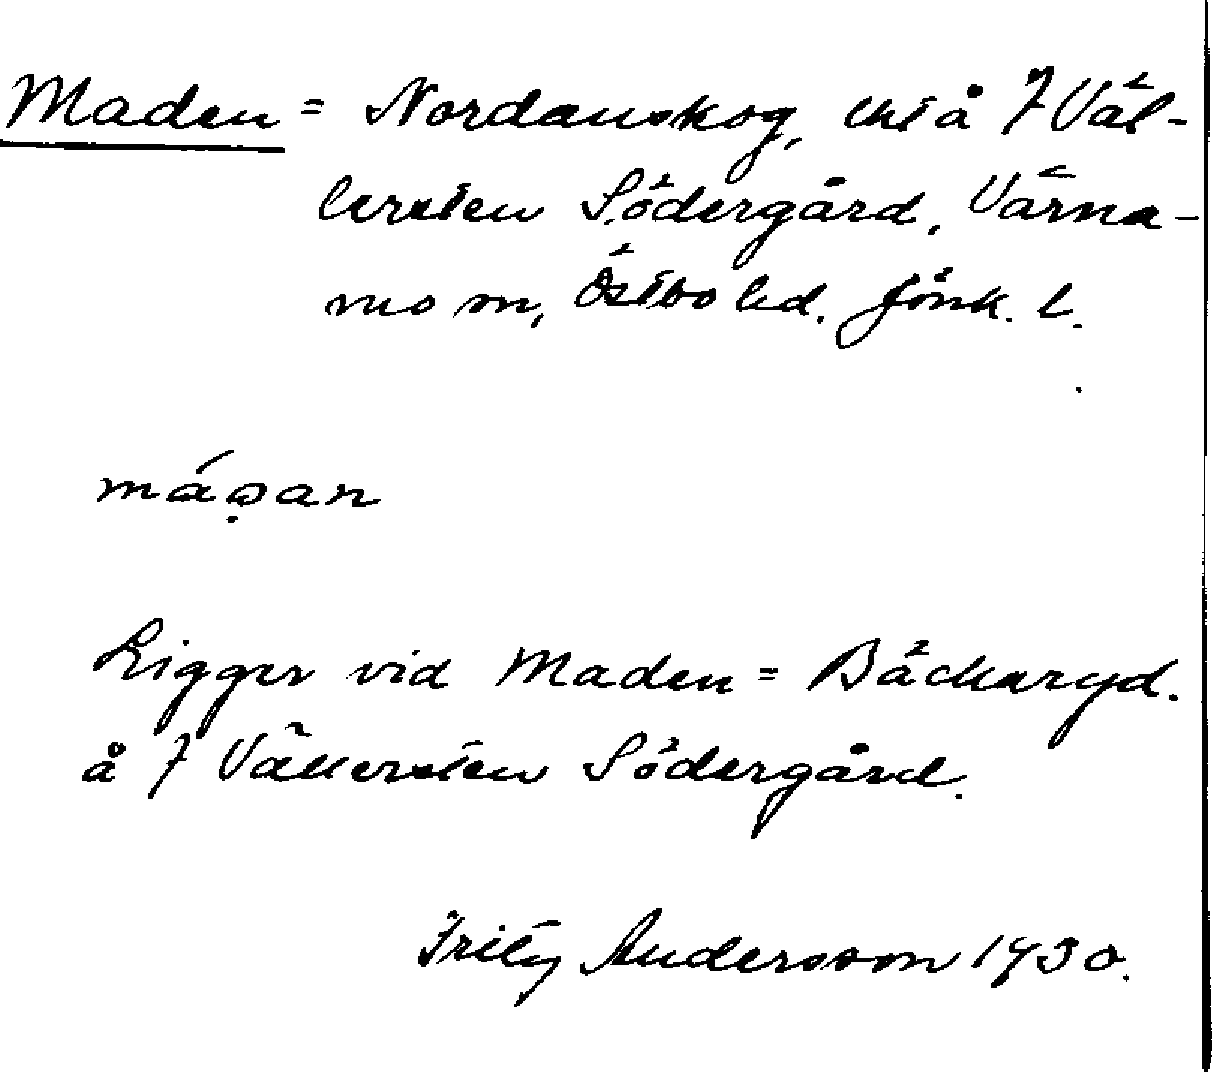 Maden = Nordanskog, th å 7 Väl-
lersten Södergård, Värna-
mo sn, Östbo hd. Jönk. l.
máọan
Ligger vid Maden = Bäckaryd.
å 7 Vällersten Södergård.
Fritz Andersson 1930.